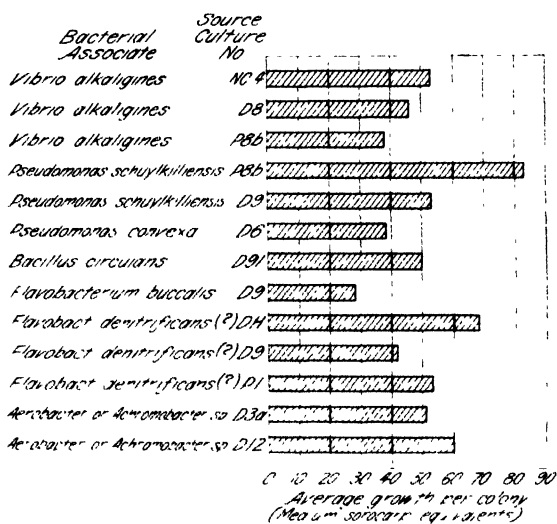 Bacterial Associate
Source Culture No
Vibrio alkaligines NC4
Vibrio alkaligines D8
Vibrio alkaligines P8b
Pseudomonas schuylkilliensis P8b
Pseudomonas schuylkiliensis D9
Pseudomonas convexa D6
Bacillus circulans D91
Flavobacterium buccalis D9
Flavobact denitrificans(?) DH
Flavobact denitrificans(?) D9
Flavobact denitrificans(?) D1
Aerobacter or Achromobacter sp D3a
Aerobacter or Achromobacter sp D12
0 10 20 30 40 50 60 70 80 90
Average growth per colony
(Medium sorocarp equivalents)